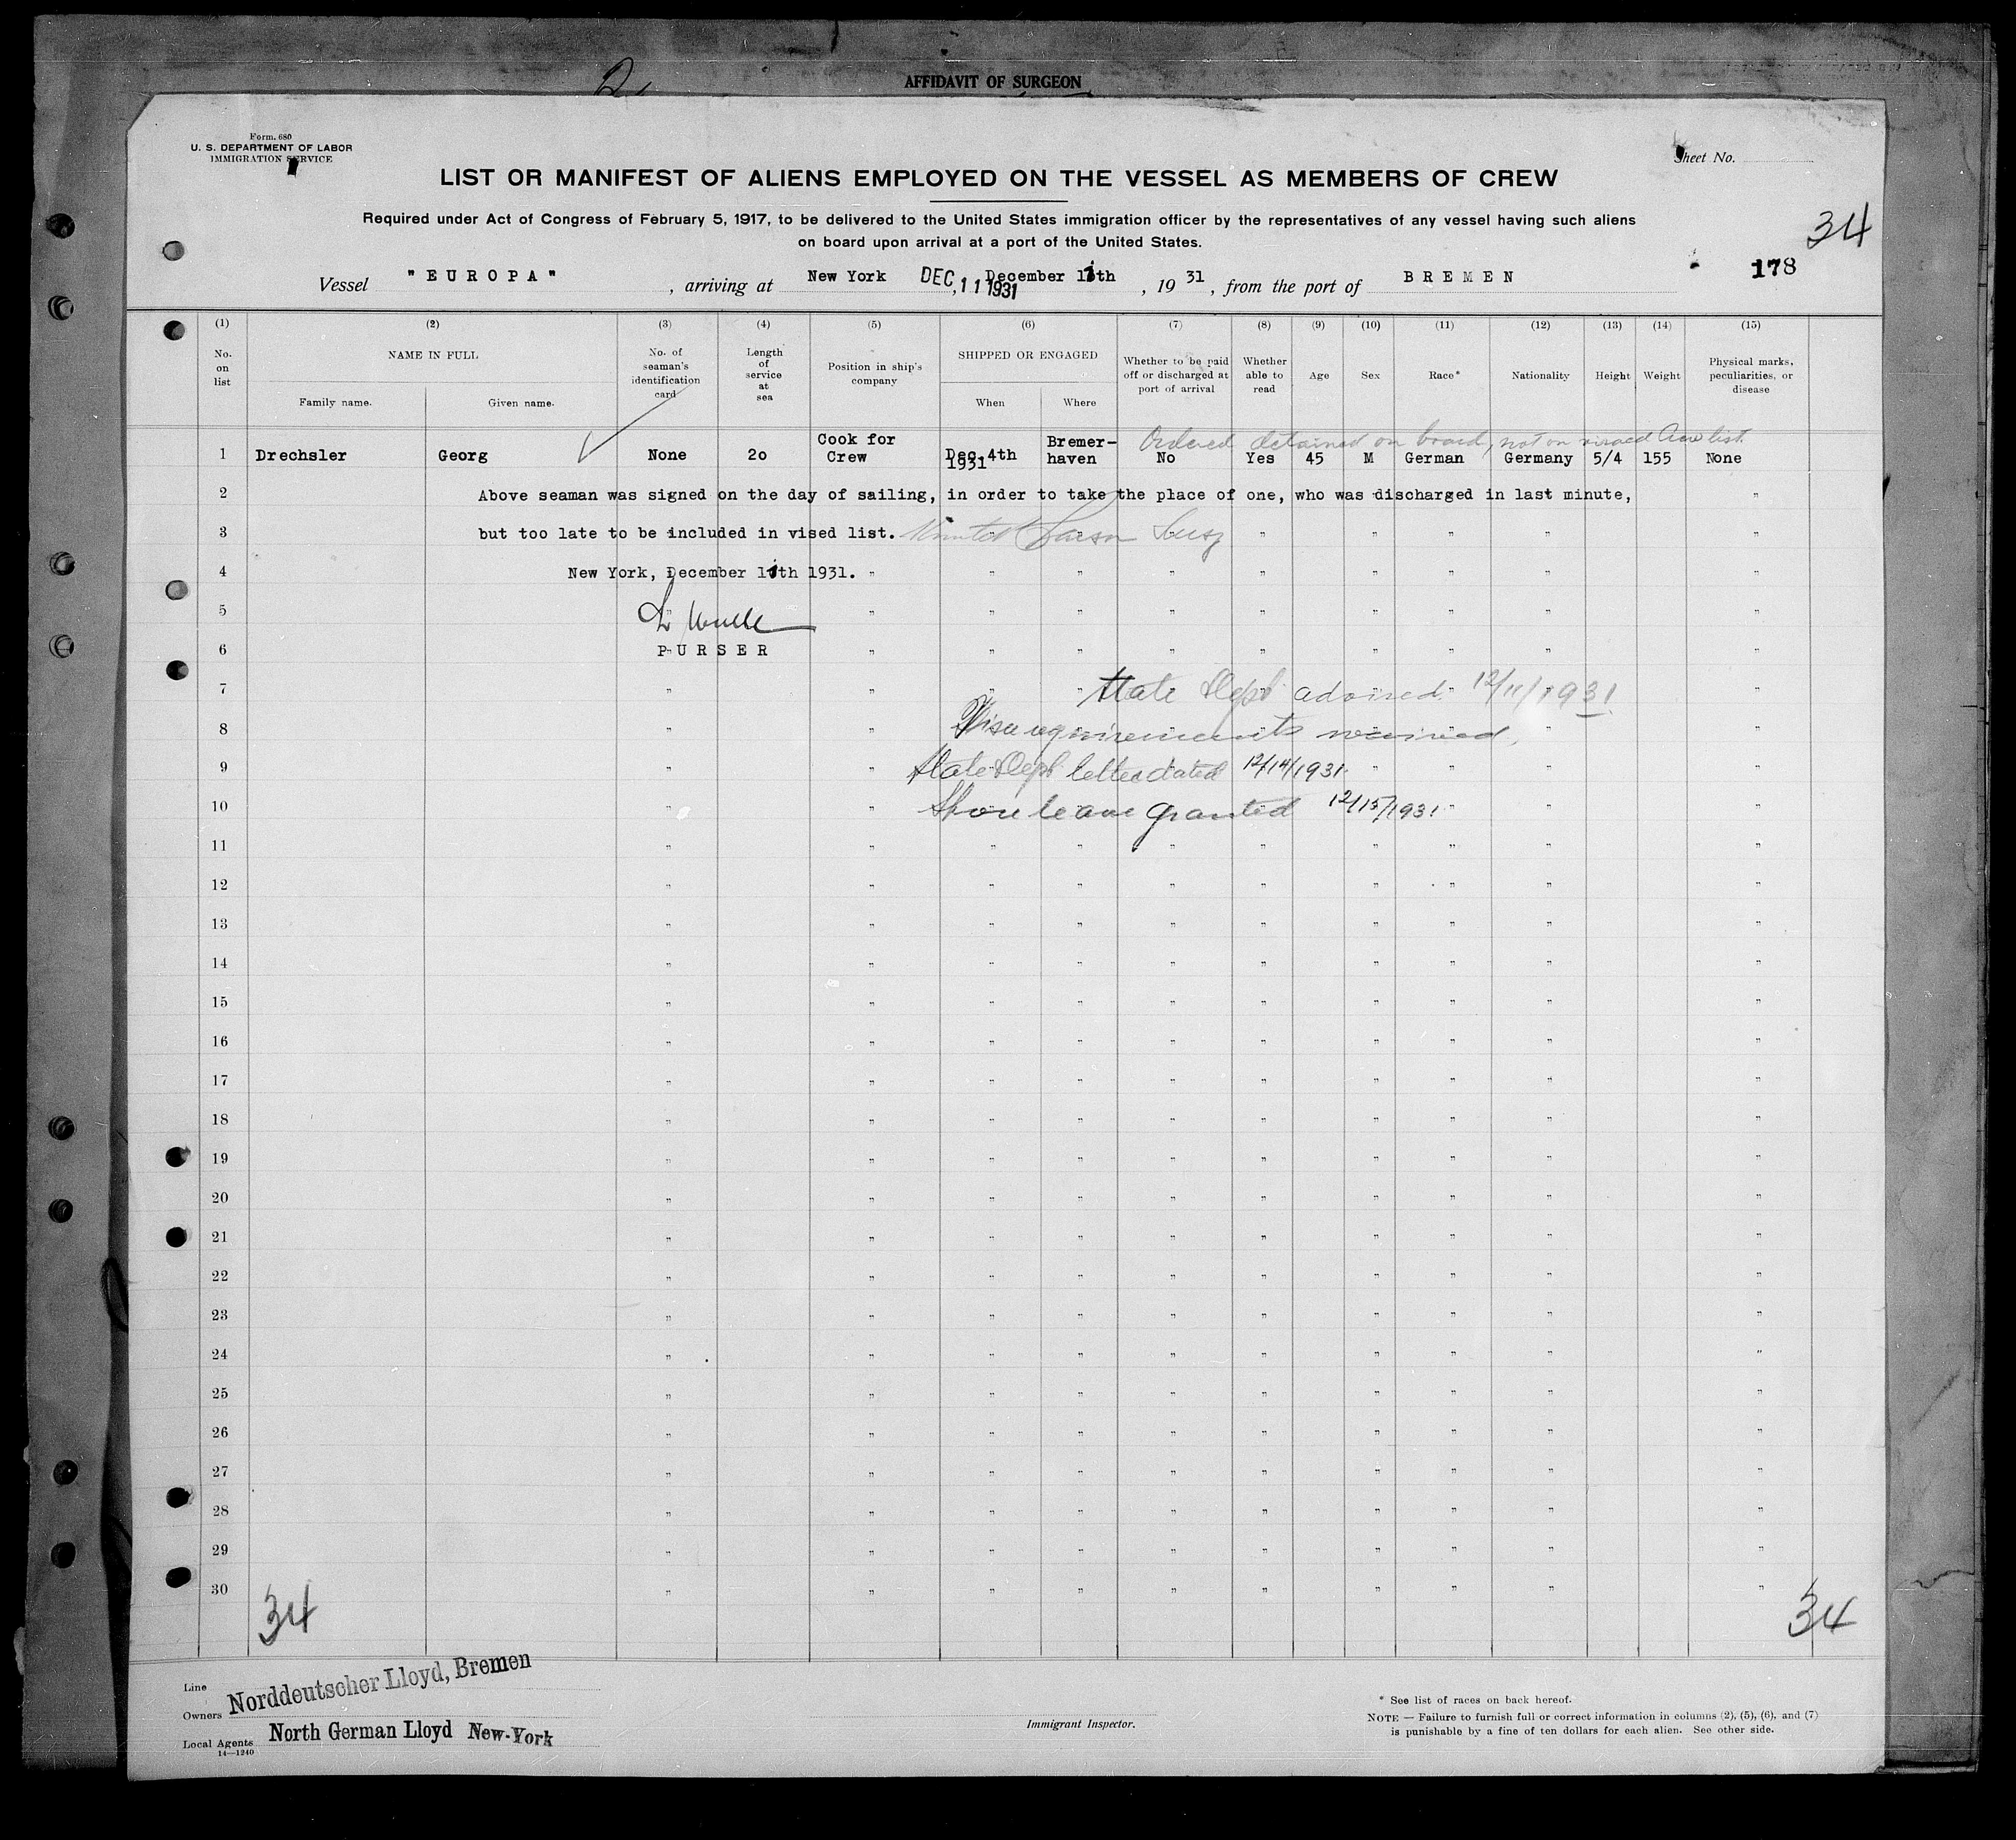 AFFIDAVIT OF SURGEON
Form. 680
U. S. DEPARTMENT OF LABOR
IMMIGRATION SERVICE
Sheet No.
LIST OR MANIFEST OF ALIENS EMPLOYED ON THE VESSEL AS MEMBERS OF CREW
Required under Act of Congress of February 5, 1917, to be delivered to the United States immigration officer by the representatives of any vessel having such aliens
on board upon arrival at a port of the United States.
34
178
Vessel "EUROPA", arriving at New York DEC 11 1931 December 11th, 1931, from the port of BREMEN
(1) (2) (3) (4) (5) (6) (7) (8) (9) (10) (11) (12) (13) (14) (15)
No. on list
NAME IN FULL
Family name. Given name.
No. of seaman's identification card
Length of service at sea
Position in ship's company
SHIPPED OR ENGAGED
When Where
Whether to be paid off or discharged at port of arrival
Whether able to read
Age
Sex
Race*
Nationality
Height
Weight
Physical marks, peculiarities, or disease
Ordered detained on board, not on visaed crew list
1 Drechsler Georg None 20 Cook for Crew Dec 4th 1931 Bremer-haven No Yes 45 M German Germany 5/4 155 None
2 Above seaman was signed on the day of sailing, in order to take the place of one, who was discharged in last minute, "
3 but too late to be included in vised list. " " " " " "
4 New York, December 11th 1931. " " " " " " " " "
5 " " " " " " " " " "
6 PURSER " " " " " " " " "
7 " " " " State Dept advised 12/11/1931 "
8 " " Visa requirements waived, " "
9 " " State Dept letter dated 12/14/1931 " " " "
10 " " Shore leave granted 12/15/1931 " " "
11 " " " " " " " " " "
12 " " " " " " " " " "
13 " " " " " " " " " "
14 " " " " " " " " " "
15 " " " " " " " " " "
16 " " " " " " " " " "
17 " " " " " " " " " "
18 " " " " " " " " " "
19 " " " " " " " " " "
20 " " " " " " " " " "
21 " " " " " " " " " "
22 " " " " " " " " " "
23 " " " " " " " " " "
24 " " " " " " " " " "
25 " " " " " " " " " "
26 " " " " " " " " " "
27 " " " " " " " " " "
28 " " " " " " " " " "
29 " " " " " " " " " "
30 " " " " " " " " " "
34
34
Line
Owners Norddeutscher Lloyd, Bremen
Local Agents North German Lloyd New-York
14—1240
Immigrant Inspector.
* See list of races on back hereof.
NOTE — Failure to furnish full or correct information in columns (2), (5), (6), and (7)
is punishable by a fine of ten dollars for each alien. See other side.